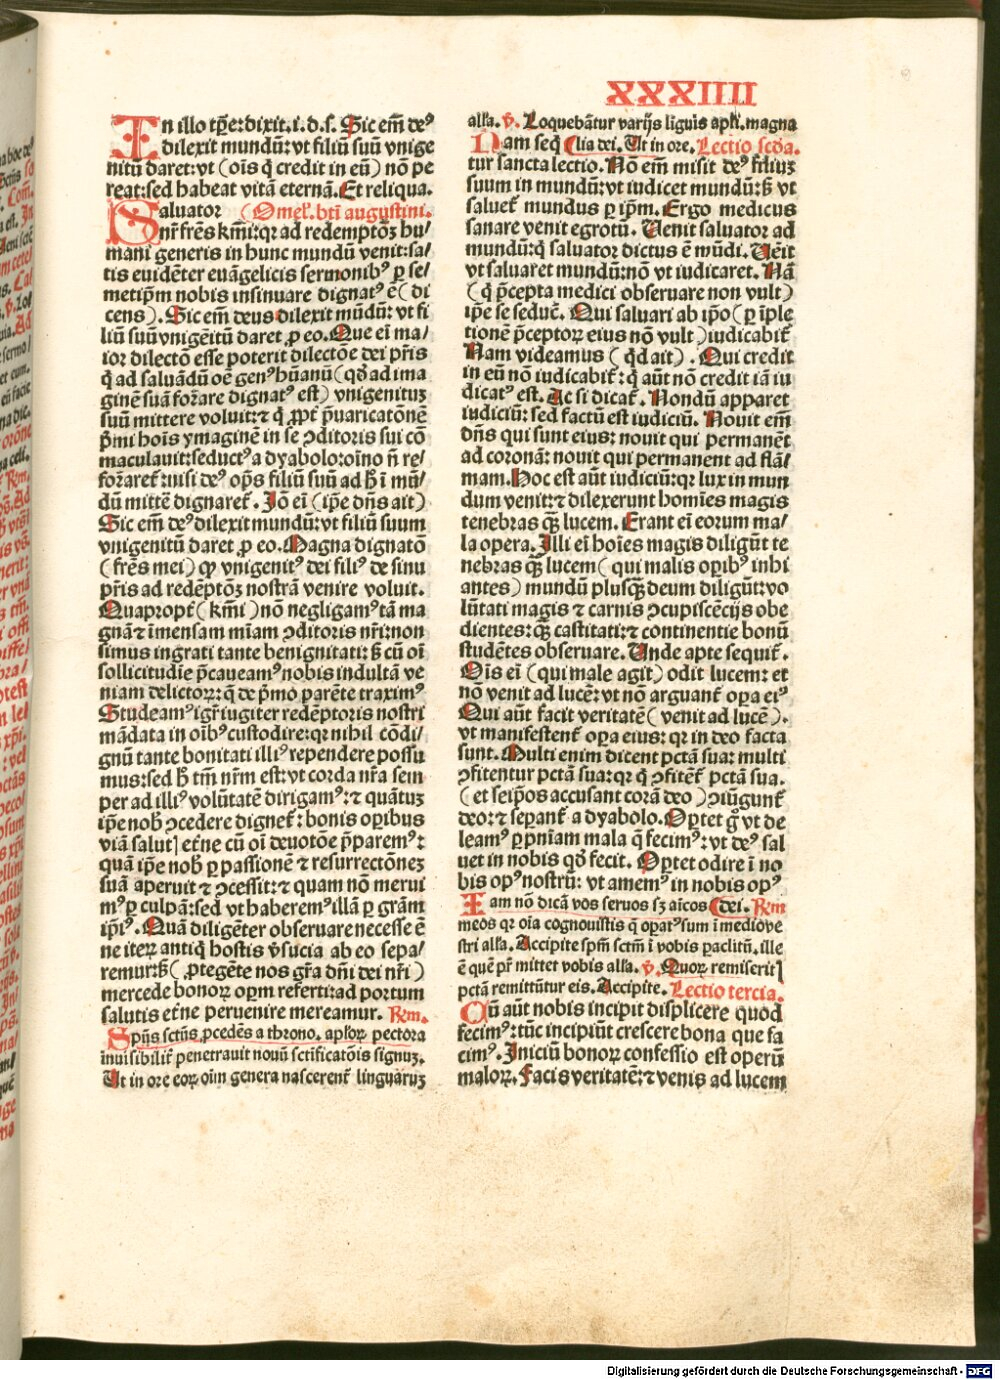 XXXIIII
In illo tp̄e: dixit. i. d. s. Sic em̄ deꝰ
dilexit mundū: vt filiū suū vnige
nitū daret: vt (ois q̄ credit in eū) nō pe
reat: sed habeat vitā eternā. Et reliqua.
Saluator (Omel'. bt̄i augustini.
nr̄ fr̄es km̄i: qr ad redemptōꝫ hu/
mani generis in hunc mundū venit: sa/
tis euidēter euāgelicis sermonibꝰ ꝑ se/
metip̄m nobis insinuare dignatꝰ ē (di
cens). Sic em̄ deus dilexit mūdū: vt fi
liū suū vnigēitū daret ꝓ eo. Que ei ma/
ior dilectō esse poterit dilectōe dei p̄ris
q̄ ad saluādū oē genꝰ hūanū (qd̄ ad ima
ginē suā for̄are dignatꝰ est) vnigenituꝫ
suū mittere voluit: ⁊ q̄ ꝓpt̄ p̄uaricatōnē
p̄mi hois ymaginē in se ↄditoris sui cō
maculauit: seductꝰ a dyabolo: oino n̄ re/
for̄aret: nisi deꝰ op̄s filiū suū ad h̄ i mū/
dū mittē dignaret. Iō ei (ip̄e dn̄s ait)
Sic em̄ deꝰ dilexit mundū: vt filiū suum
vnigenitū daret ꝓ eo. Magna dignatō
(fr̄es mei) qꝫ vnigenitꝰ dei filiꝰ de sinu
p̄ris ad redēptōꝫ nostrā venire voluit.
Quapropt̄ (km̄i) nō negligamꝰ tā ma
gnā ⁊ īmensam mīam ↄditoris nr̄i: non
simus ingrati tante benignitati: sꝫ cū oī
sollicitudīe p̄caueamꝰ nobis indultā ve
niam delictorꝝ: q̄ de p̄mo parēte traximꝰ
Studeamꝰ igr̄ iugiter redēptoris nostri
mādata in oibꝰ custodire: qr nihil cōdi/
gnū tante bonitati illiꝰ rependere possu
mus: sed h̄ tm̄ nr̄m est: vt corda nr̄a sem
per ad illiꝰ volūtatē dirigamꝰ: ⁊ quātuꝫ
ip̄e nob̄ ↄcedere dignet: bonis oꝑibus
viā salut̄ et̄ne cū oī deuotōe p̄paremꝰ:
quā ip̄e nob̄ ꝑ passionē ⁊ resurrectōneꝫ
suā aperuit ⁊ ↄcessit: ⁊ quam nō merui
mꝰ ꝑ culpā: sed vt haberemꝰ illā ꝑ grām
ip̄iꝰ. Quā diligēter obseruare necesse ē
ne iteꝝ antiq̄ hostis v̄sucia ab eo sepa/
remur: sꝫ (ꝓtegēte nos gr̄a dn̄i dei nr̄i)
mercede bonoꝝ opm̄ referti: ad portum
salutis et̄ne peruenire mereamur. Rm̄.
Spūs sctūs ꝓcedēs a throno. apl'oꝝ pectora
inuisibilit̄ penetrauit nouū sctificatōis signuꝫ.
Ut in ore eoꝝ oīm genera nascerent̄ linguaruꝫ
alla. v̄. Loquebātur varijs līguis apl'i. magna
Nam seq̄ (lia dei. Ut in ore. Lectio scd̄a.
tur sancta lectio. Nō em̄ misit deꝰ filiuꝫ
suum in mundū: vt iudicet mundū: sꝫ vt
saluet̄ mundus ꝑ ip̄m. Ergo medicus
sanare venit egrotū. Uenit saluator ad
mundū: q̄ saluator dictus ē mūdi. Uēit
vt saluaret mundū: nō vt iudicaret. Nā
(q̄ p̄cepta medici obseruare non vult)
ip̄e se seduc̄. Qui saluari ab ip̄o (ꝑ īple
tionē p̄ceptoꝝ eius nō vult) iudicabit̄
Nam videamus (qd̄ ait). Qui credit
in eū nō iudicabit̄: q̄ aūt nō credit iā iu
dicatꝰ est. Ac si dicat̄. Nondū apparet
iudiciū: sed factū est iudiciū. Nouit em̄
dn̄s qui sunt eius: nouit qui permanēt
ad coronā: nouit qui permanent ad flā/
mam. Hoc est aūt iudiciū: qr lux in mun
dum venit: ⁊ dilexerunt homīes magis
tenebras qꝫ lucem. Erant ei eorum ma/
la opera. Illi ei hoīes magis diligūt te
nebras qꝫ lucem (qui malis opibꝰ inhi
antes) mundū plusqꝫ deum diligūt: vo
lūtati magis ⁊ carnis ↄcupiscēcijs obe
dientes: qꝫ castitati: ⁊ continentie bonū
studētes obseruare. Unde apte sequit̄.
Ois ei (qui male agit) odit lucem: et
nō venit ad lucē: vt nō arguant̄ opa eiꝰ
Qui aūt facit veritatē (venit ad lucē).
vt manifestent̄ opa eius: qr in deo facta
sunt. Multi enim dicent pctā sua: multi
ↄfitentur pctā sua: qr q̄ ↄfitēt̄ pctā sua.
(et seip̄os accusant corā deo) ↄiūgunt̄
deo: ⁊ sepant̄ a dyabolo. Optet gͦ vt de
leamꝰ ꝑ pn̄iam mala q̄ fecimꝰ: vt deꝰ sal
uet in nobis qd̄ fecit. Optet odire ī no
bis opꝰ nostrū: vt amemꝰ in nobis opꝰ
Iam nō dicā vos seruos sꝫ aīcos (dei. Rm̄
meos qr oīa cognouistis q̄ opatꝰ sum ī medio ve
stri all'a. Accipite spm̄ sctm̄ ī vobis paclitū. ille
ē quē pr̄ mittet vobis all'a. v̄. Quoꝝ remiserit̄
pctā remittūtur eis. Accipite. Lectio tercia.
Cū aūt nobis incipit displicere quod
fecimꝰ: tūc incipiūt crescere bona que fa
cimꝰ. Iniciū bonoꝝ confessio est operū
maloꝝ. Facis veritatē: ⁊ venis ad lucem
Digitalisierung gefördert durch die Deutsche Forschungsgemeinschaft - DFG